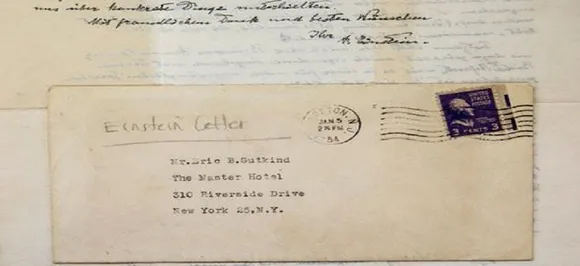 uns über konkrete Dinge unterhielten.
Mit freundlichem Dank und besten Wünschen
Ihr A. Einstein.
Einstein Letter
JAN 5
2 PM
54
UNITED STATES
POSTAGE
3 CENTS 3
Mr.Eric B.Gutkind
The Master Hotel
310 Riverside Drive
New York 25,N.Y.